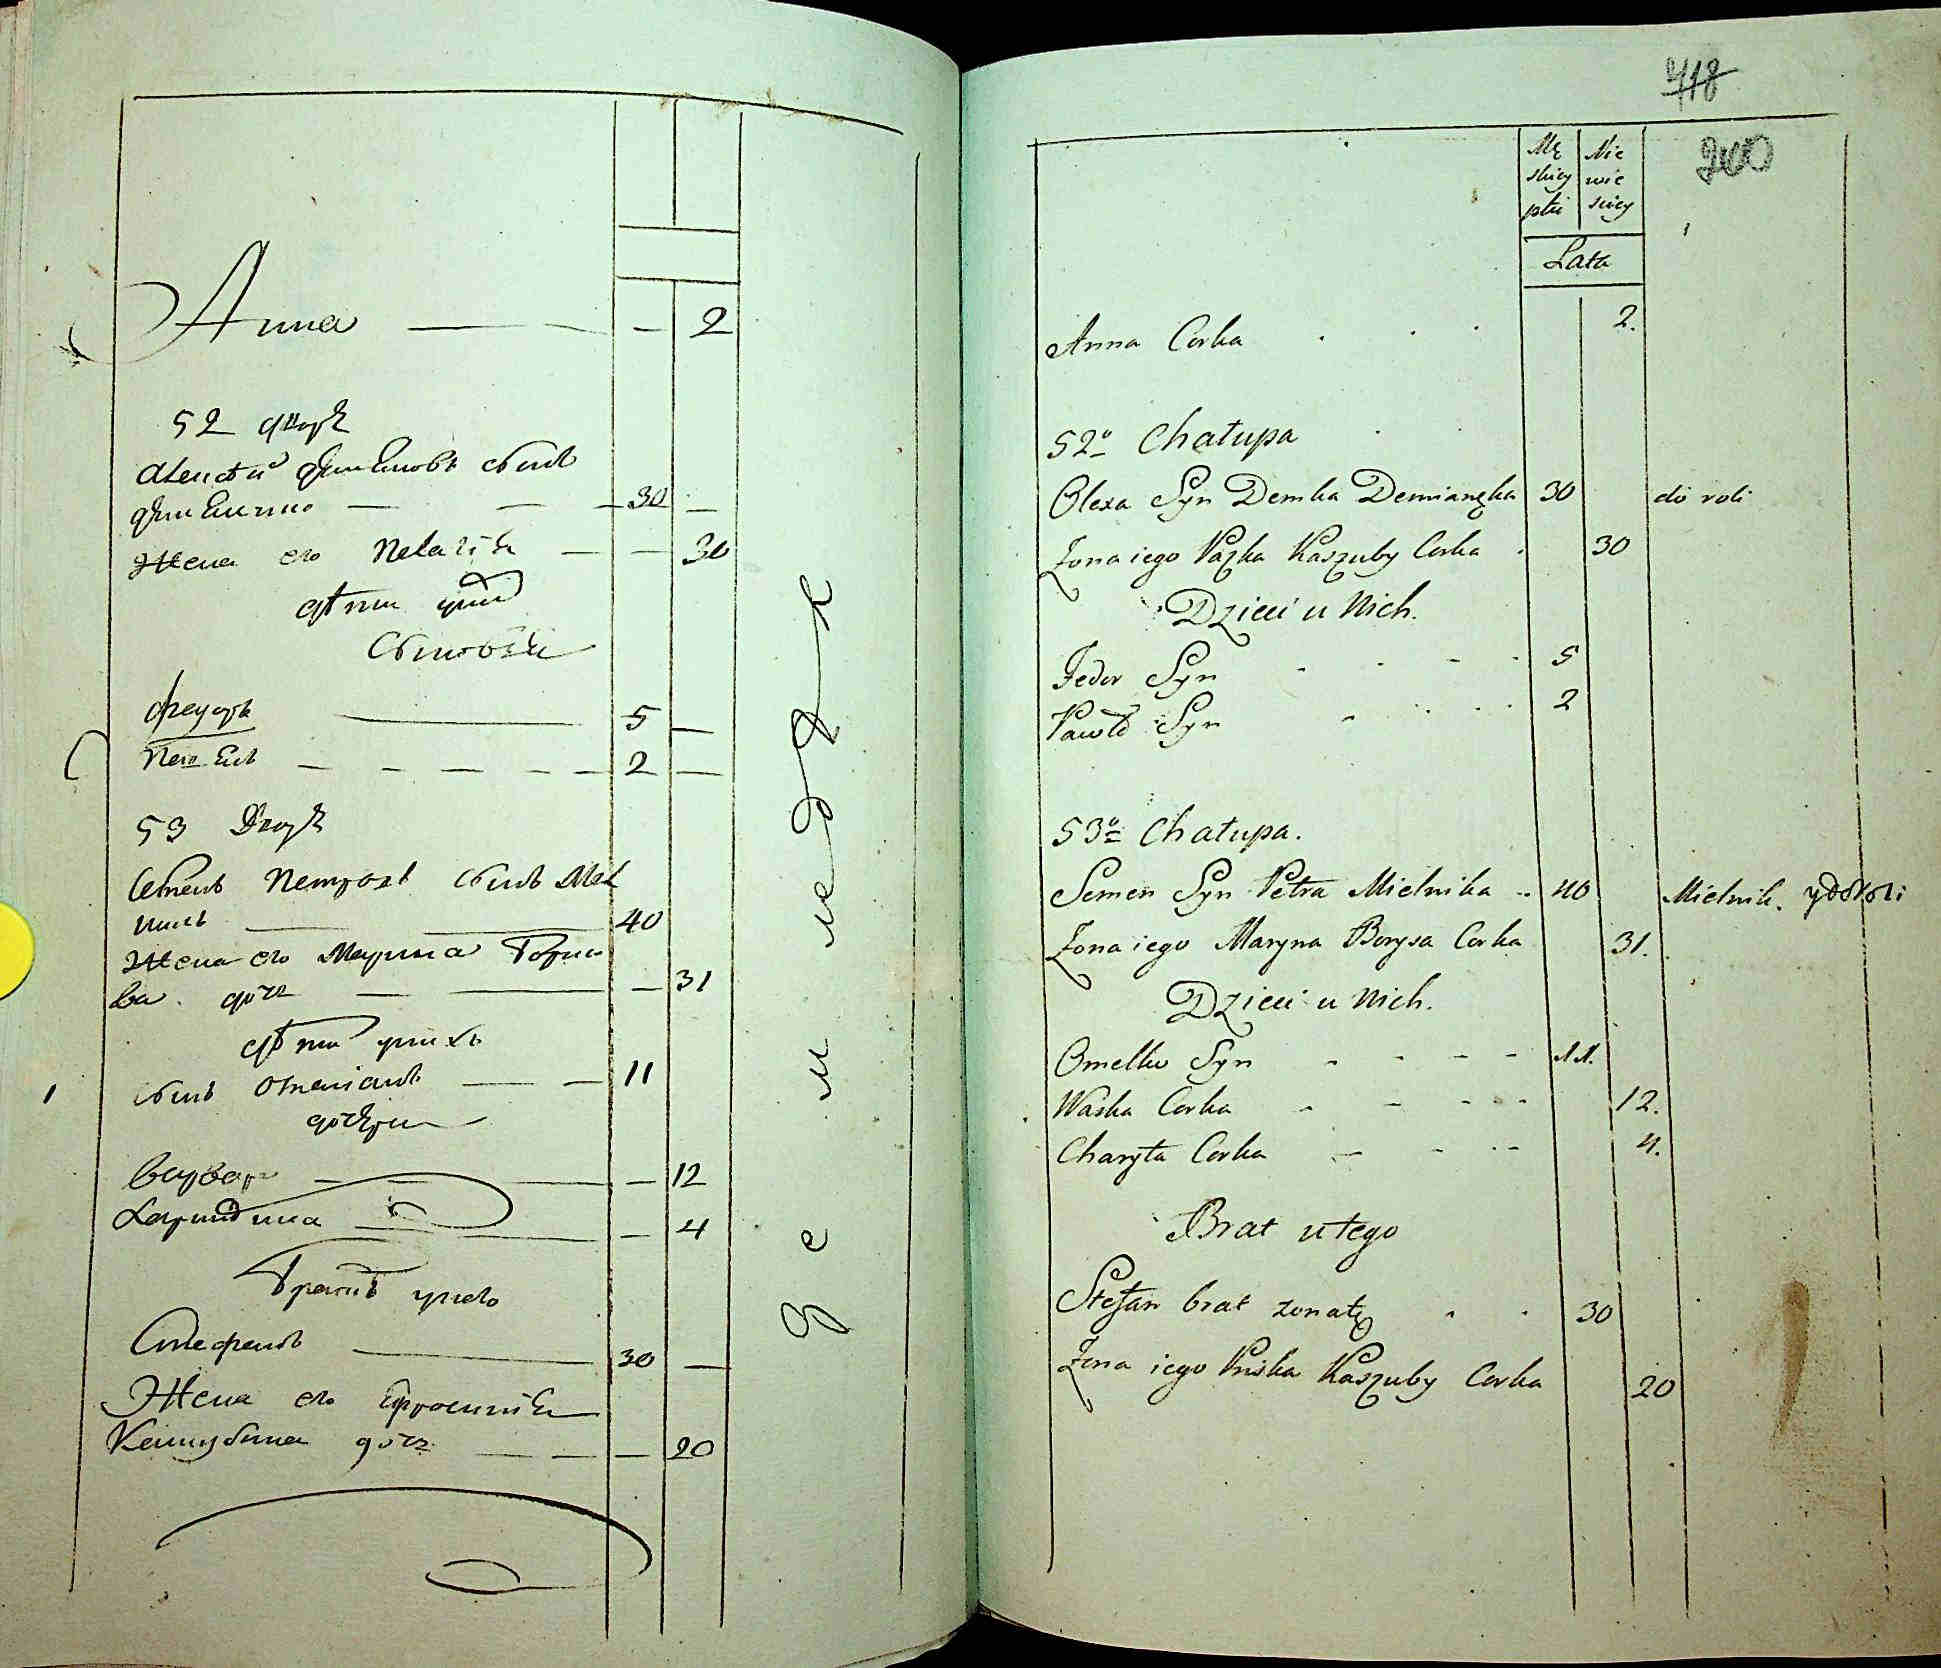 Анна — — — 2
52 дворъ
Алексѣй Демяновъ сынъ
— — — 30 —
Жена его Пелагія — — 30
дѣти у нихъ
Сыновья
Феодоръ — 5 —
Павелъ — — — — — 2 —
53 Дворъ
Семенъ Петровъ сынъ Мел
никъ — — 40
Жена его Марина Бориса
ва дочь — — — 31
дѣти у нихъ
сынъ Омелianъ — — 11
дочери
Варвара — — — 12
— — 4
Братъ у него
Стефанъ — 30 —
Жена его Ефросинія
Кашубина дочь — — — 20
земледѣл
418
200
Mę
skiey
płci
Nie
wie
sciey
Lata
Anna Corka 2.
52º Chałupa
Olexa Syn Demka Demianęka 30 do roli
Zona iego Pazka Kaszuby Corka 30
Dzieci u Nich.
Fedor Syn 5
Paweł Syn 2
53º Chałupa.
Semen Syn Petra Mielnika 40 Mielnik. y do roli
Zona iego Maryna Borysa Corka 31.
Dzieci u Nich.
Omelko Syn 11.
Waska Corka 12.
Charyta Corka 4.
Brat u tego
Stefan brat zonaty 30
Zona iego Pryska Kaszuby Corka 20